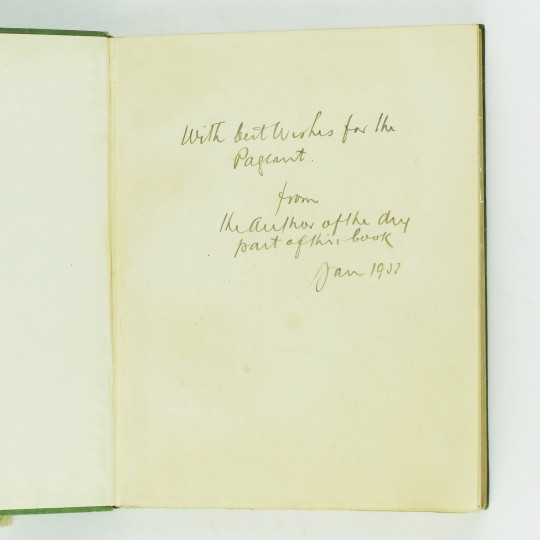 With best Wishes for the
Pageant.
from
the Author of the dry
part of this book
Jan 1933